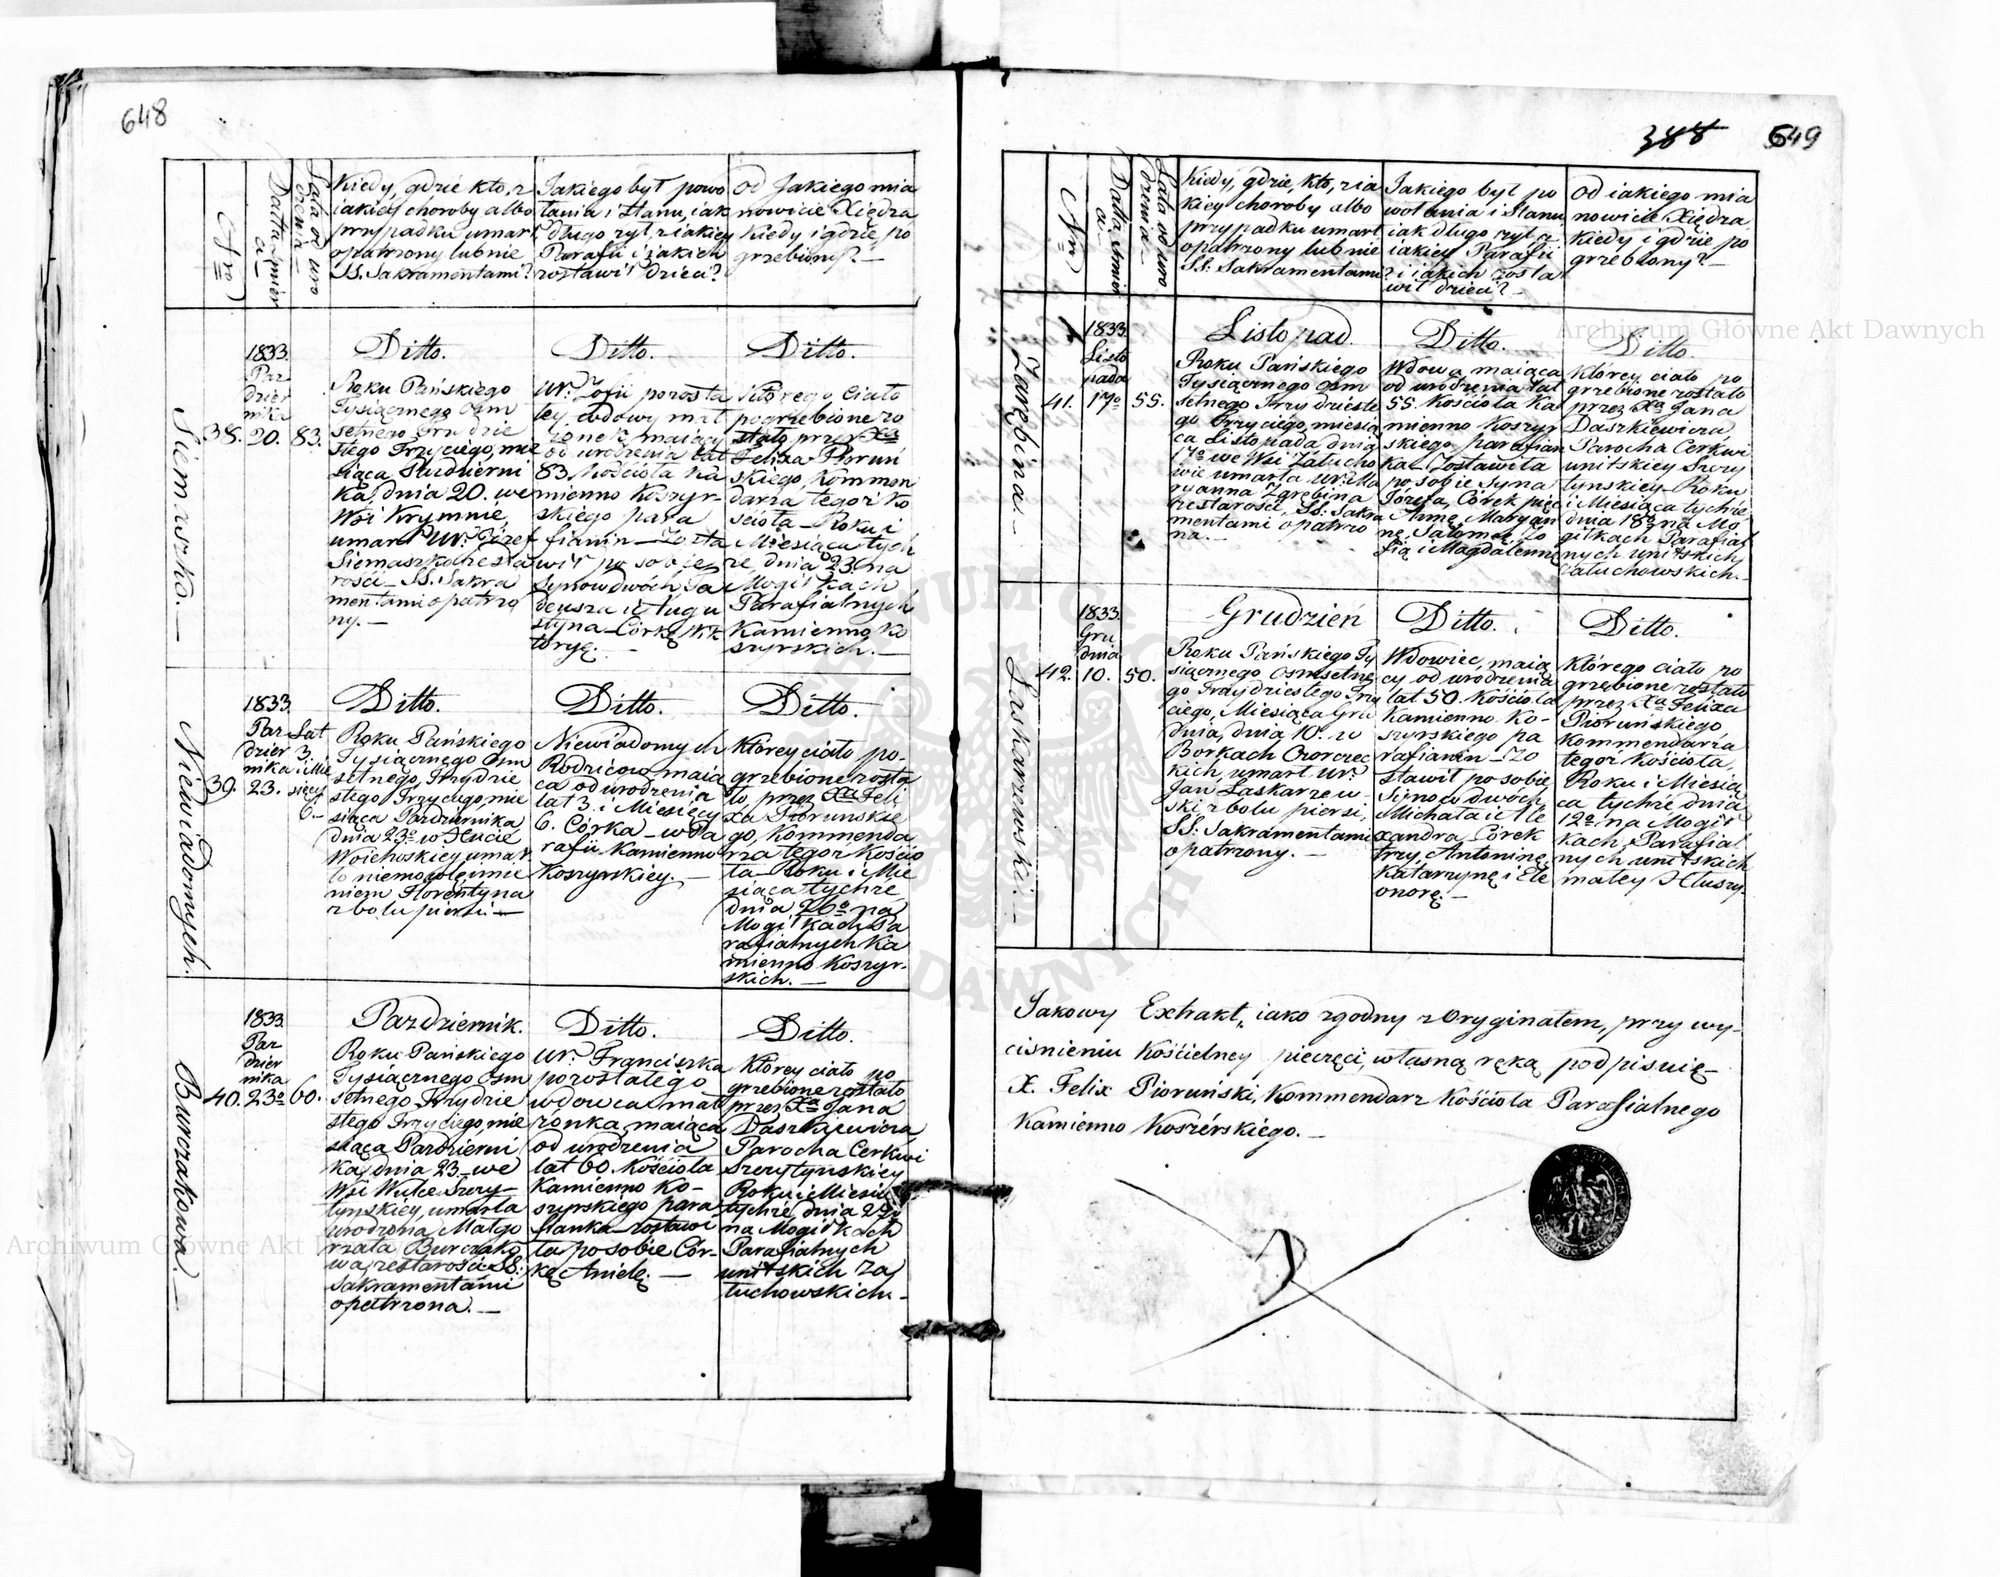 648
Nro
Datta śmier
ci
Lata od uro
dzenia
Kiedy, gdzie kto, z
iakiey choroby albo
przypadku umarł
opatrzony lub nie
SS. Sakramentami?
Jakiego był powo
łania i Stanu, iak
długo żył, z iakiey
Parafii i iakich
zostawił dzieci?
Od Jakiego mia
nowicie Xiędza
Kiedy i gdzie po
grzebiony? —
Siemaszko. —
38.
1833.
Paz
dzier
nika
20.
83.
Ditto.
Roku Pańskiego
Tysiącznego Osm
setnego Trzydzie
stego Trzeciego, mie
siąca Pazdzierni
ka, dnia 20. we
Wsi Krymnie,
umarł Ur: Józef
Siemaszko z sta
rości SS. Sakra
mentami opatrzo
ny. —
Ditto.
Ur: Zofii pozosta
łey Wdowy mał
żonek maiący
od urodzenia lat
83. Kościoła Ka
mienno Koszyr-
skiego para
fianin — Zosta
wił po sobie
Synow dwóch Ta
deusza i Augu
styna — Córkę Wik
toryę. —
Ditto.
Którego ciało
pogrzebione zo
stało przez Xa
Felixa Pioruń
skiego, Kommen
darza tegoż Ko
ścioła — Roku i
Miesiąca tych
że, dnia 23. na
Mogiłkach
Parafialnych
Kamienno Ko
szyrskich. —
Niewiadomych.
39.
1833.
Paz
dzier
nika
23.
Lat
3.
i Mie
sięcy
6. —
Ditto.
Roku Pańskiego
Tysiącznego Osm
setnego Trzydzie
stego Trzeciego, mie
siąca Pazdziernika
dnia 23o w Hucie
Woiehoskiey umar
ło niemowle imie
niem Florentyna
z bolu piersi. —
Ditto.
Niewiadomych
Rodziców maią
ca od urodzenia
lat 3. i Miesięcy
6. Córka — w Pa
rafii Kamienno
Koszyrskiey. —
Ditto.
Którey ciało po-
grzebione zosta
ło, przez Xa Feli
xa Pioruńskie
go, Kommenda
rza tegoż Kościo
ła — Roku i Mie
siąca tychże
dnia 26o na
Mogiłkach Pa
rafialnych Ka
mienno Koszyr-
skich. —
Burczakowa. —
40.
1833.
Paz
dzier
nika
23o
60.
Pazdziernik.
Roku Pańskiego
Tysiącznego Osm
setnego Trzydzie
stego Trzeciego, mie
siąca Pazdzierni
ka, dnia 23 we
Wsi Wulce Szczy-
tynskiey, umarła
urodzona Małgo
rzata Burczako
wa, z starości SS:
Sakramentami
opatrzona. —
Ditto.
Ur: Franciszka
pozostałego
wdowca mał
żonka, maiąca
od urodzenia
lat 60. Kościoła
Kamienno Ko-
szyrskiego para
fianka zostawi
ła po sobie Cór-
kę Anielę. —
Ditto.
Którey ciało po
grzebione zostało
przez Xa Jana
Daszkiewicza
Parocha Cerkwi
Szczytynskiey
Roku i Miesią
tychże, dnia
na Mogiłkach
Parafialnych
unitskich Za
łuchowskich. —
388
649
Nro
Datta śmier
ci
Lata od uro
dzenia
Kiedy, gdzie, kto, z ia
kiey choroby albo
przypadku umarł
opatrzony lub nie
SS: Sakramentami?
Jakiego był po
wołania i Stanu
iak długo żył z
iakiey Parafii
i iakich zosta
wił dzieci? —
Od iakiego mia
nowicie Xiędza
Kiedy i gdzie po
grzebiony? —
Zarębina. —
41.
1833.
Listo
pada
17o
55.
Listopad
Roku Pańskiego
Tysiącznego Osm
setnego Trzydzieste
go Trzeciego, miesią
ca Listopada dnia
17o we Wsi Załucho
wie umarła Ur: Ma
ryanna Zarębina
z starości, SS: Sakra
mentami opatrzo
na. —
Ditto.
Wdowa maiąca
od urodzenia lat
55. Kościoła Ka
mienno Koszyr
skiego parafian
ka — Zostawiła
po sobie Syna
Józefa, Córek pięć
Annę, Maryan
nę, Salomeę, Zo
fią i Magdalennę
Ditto.
Którey ciało po
grzebione zostało
przez Xa Jana
Daszkiewicza,
Parocha Cerkwi
unitskiey Szczy
tynskiey — Roku
i Miesiąca tychże
dnia 18o na Mo
giłkach Parafial
nych unitskich
Załuchowskich. —
Łaskarzewski. —
42.
1833.
Gru
dnia
10.
50.
Grudzień
Roku Pańskiego Ty
siącznego Osmsetne
go Trzydziestego Trze
ciego, Miesiąca Gru
dnia, dnia 10. w
Borkach
kich, umarł Ur:
Jan Łaskarzew-
ski z bolu piersi,
SS: Sakramentami
opatrzony. —
Ditto.
Wdowiec, maią
cy od urodzenia
lat 50. Kościoła
Kamienno Ko-
szyrskiego pa
rafianin — Zo
stawił po sobie
Synow dwóch
Michała i Ale
xandra, Córek
trzy, Antoninę
Katarzynę i Ele
onorę. —
Ditto.
Którego ciało po
grzebione zostało
przez Xa Felixa
Pioruńskiego
Kommendarza
tegoż Kościoła,
Roku i Miesią
ca tychże dnia
12o na Mogił
kach Parafial
nych unitskich
małey Hłuszy.
Jakowy Extrakt, iako zgodny z Oryginałem, przy wy-
ciśnieniu Kościelney pieczęci, własną ręką podpisuię —
X. Felix Pioruński, Kommendarz Kościoła Parafialnego
Kamienno Koszérskiego. —
Archiwum Główne Akt Dawnych
Archiwum Główne Akt Dawnych